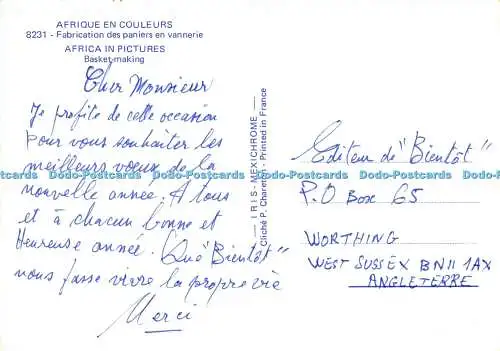 AFRIQUE EN COULEURS
8231 - Fabrication des paniers en vannerie
AFRICA IN PICTURES
Basket-making
Cher Monsieur
Je profite de cette occasion
pour vous souhaiter les
meilleurs voeux de la
nouvelle année. A tous
et à chacun bonne et
Heureuse année. Que "Bientôt"
nous fasse vivre la propre vie
Merci
IRIS - MEXICHROME
Cliché P. Chareton - Printed in France
Editeur de "Bientôt"
P.O Box 65
WORTHING
WEST SUSSEX BN11 1AX
ANGLETERRE
Dodo-Postcards Dodo-Postcards Dodo-Postcards Dodo-Postcards Dodo-Postcards